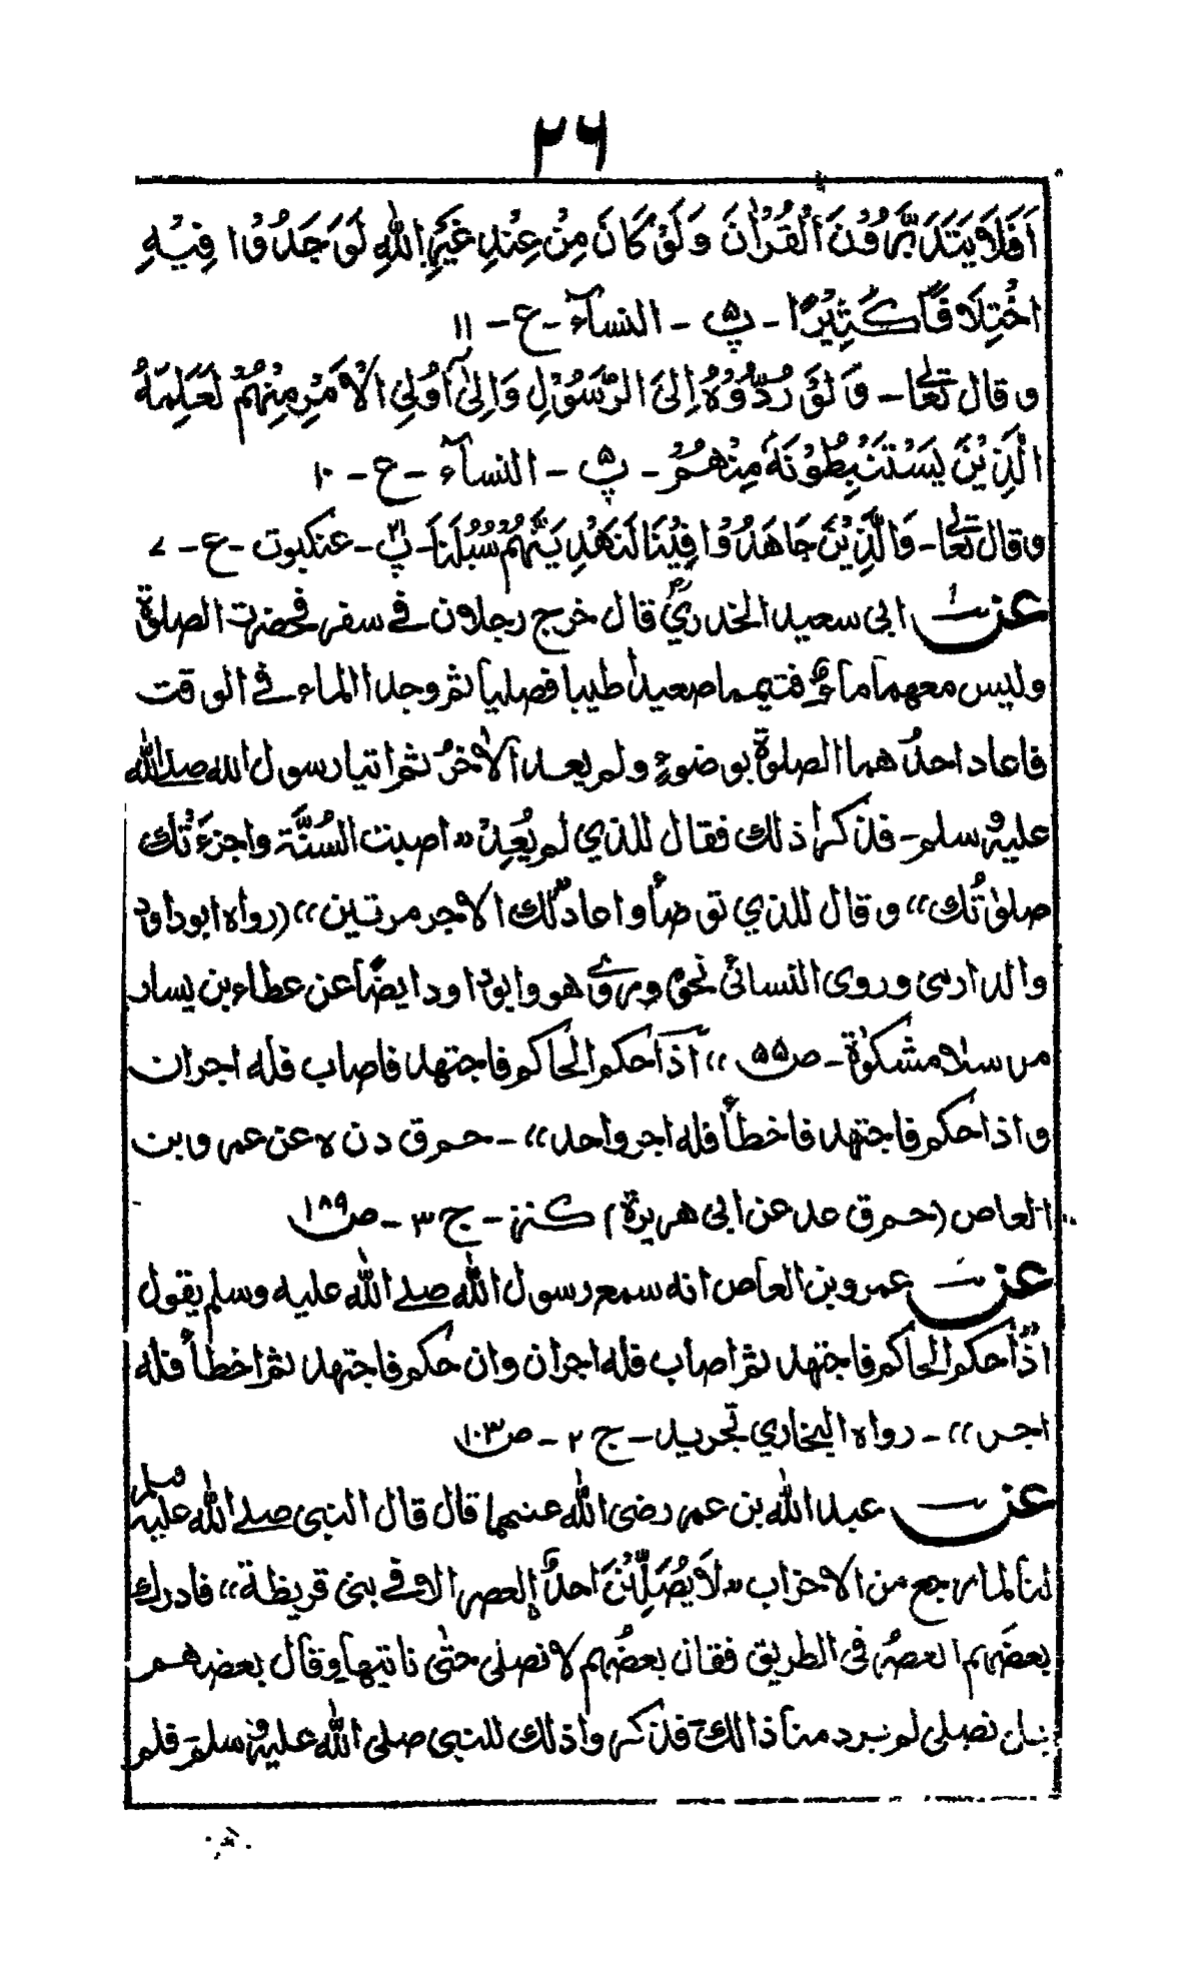 ٢٦
اَفَلَا يَتَدَبَّرُوْنَ الْقُرْاٰنَ وَلَوْ كَانَ مِنْ عِنْدِ غَيْرِ اللّٰهِ لَوَجَدُوْا فِيْهِ
اخْتِلَافًا كَثِيْرًا - پ ۵ - النسآء - ع - ١١
وقال تعالٰى - وَلَوْ رُدُّوْهُ اِلَى الرَّسُوْلِ وَاِلٰى اُولِى الْاَمْرِ مِنْهُمْ لَعَلِمَهُ
الَّذِيْنَ يَسْتَنْبِطُوْنَهٗ مِنْهُمْ - پ ۵ - النسآء - ع - ١٠
وقال تعالٰى - وَالَّذِيْنَ جَاهَدُوْا فِيْنَا لَنَهْدِيَنَّهُمْ سُبُلَنَا - پ ٢١ - عنكبوت - ع - ٧
عن ابى سعيد الخدريؓ قال خرج رجلان فے سفر فحضرت الصلوة
وليس معهما ماء فتيمما صعيدا طيبا فصليا ثم وجدا الماء فے الوقت
فاعاد احدُهما الصلوة بوضوءٍ ولم يعد الاٰخرُ ثم اتيا رسول الله صلے الله
عليه وسلم - فذكرا ذلك فقال للذي لم يُعِدْ «اصبت السُنَّة واجزءَتْك
صلوٰتُك» وقال للذي توضأ واعاد لَك الاجر مرتين» (رواه ابوداود
والدارمى وروى النسائى نحوه ورى هو وابوداود ايضًا عن عطاء بن يسار
مرسلا مشكوٰة - ص ۵۵ » اذا حكم الحاكم فاجتهد فاصاب فله اجران
واذا حكم فاجتهد فاخطأ فله اجر واحد» - حم ق د ن ه عن عمرو بن
العاص (حم ق عد عن ابى هريرة) كنز - ج ٣ - ص ١٨٩
عن عمرو بن العاص انه سمع رسول الله صلے الله عليه وسلم يقول
اذا حكم الحاكم فاجتهد ثم اصاب فله اجران وان حكم فاجتهد ثم اخطأ فله
اجر» - رواه البخاري تجريد - ج ٢ - ص ١٠٣
عن عبد الله بن عمر رضى الله عنهما قال قال النبى صلے الله عليه وسلم
لنا لما رجع من الاحزاب «لَا يُصَلِّيَنَّ احدٌ العصر الا فے بنى قريظة» فادرك
بعضَهم العصرُ فى الطريق فقال بعضُهم لا نصلى حتٰى ناتيها وقال بعضهم
بل نصلى لم يرد منا ذالك فذكروا ذلك للنبى صلى الله عليه وسلم فلم